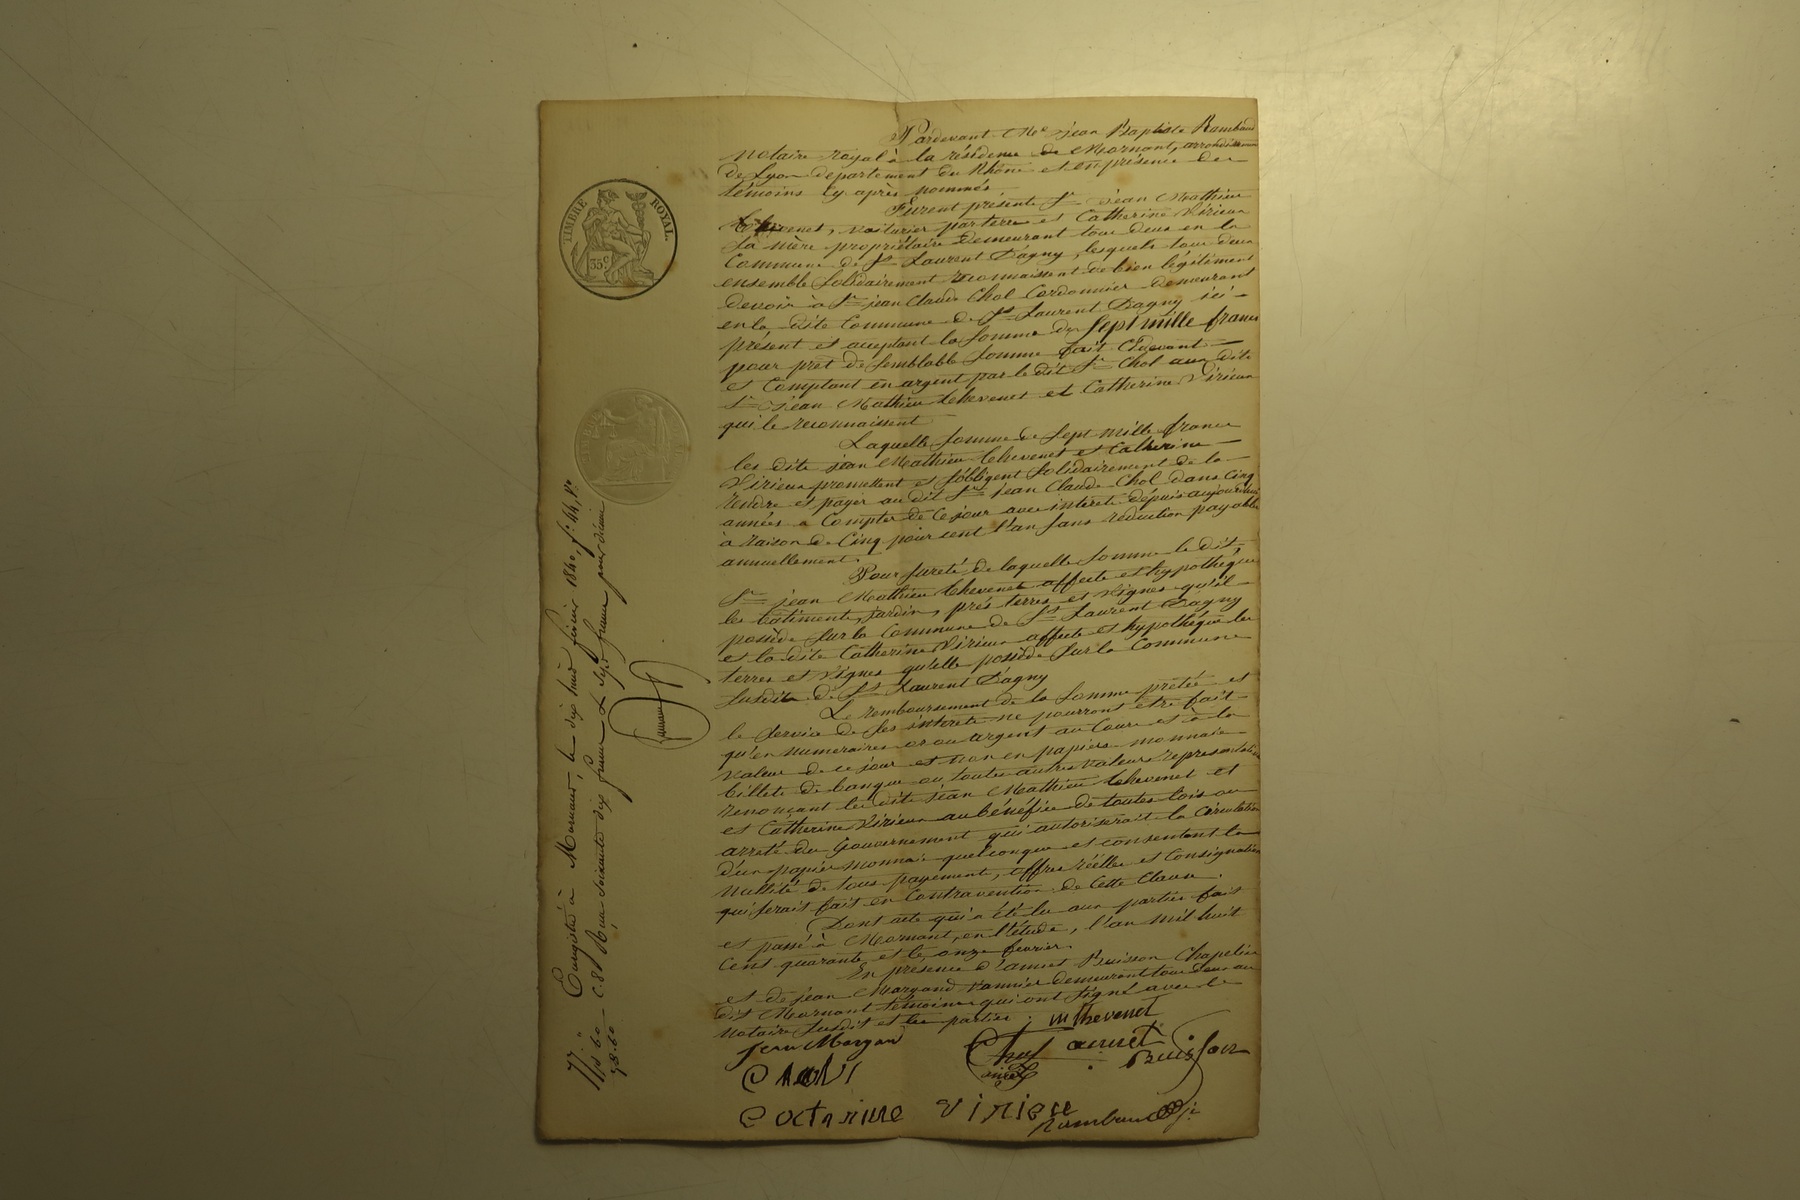 Pardevant Me jean Baptiste Rambaud
notaire royal à la résidence de Mornant, arrondissement
de Lyon departement du Rhône et en présence des
témoins cy après nommés
Furent présents Sr jean Mathieu
thevenet, voiturier par terre et Catherine Virieux
Sa mère propriétaire demeurant tous deux en la
Commune de St Laurent D'agny, lesquels tous deux
ensemble solidairement reconnaissent de bien légitiment
devoir à Sr jean Claude Chol Cordonnier demeurant
en la dite Commune de St Laurent Dagny ici
présent et acceptant la Somme de Sept mille francs
pour prêt de semblable Somme fait Cidevant
et Comptant en argent par le dit Sr Chol aux dits
Sr jean Mathieu thevenet et Catherine Virieux
qui le reconnaissent
Laquelle Somme de Sept mille francs
les dits jean Mathieu thevenet et Catherine
Virieux promettent et s'obligent solidairement de la
rendre et payer au dit Sr jean Claude Chol dans Cinq
années a Compter de Ce jour avec intérêts depuis aujourd'hui
à raison de Cinq pour cent l'an sans réduction payable
annuellement.
Pour Sureté de laquelle Somme le dit
Sr jean Mathieu thevenet affecte et hypothèque
les bâtiments, jardin, prés terres et vignes qu'il
possède Sur la Commune de St Laurent Dagny
et la dite Catherine Virieux affecte et hypothèque les
terres et vignes qu'elle possède Sur la Commune
Susdite de St Laurent D'agny
Le remboursement de la Somme prêtée et
le Service de Ses intérêts ne pourront etre fait
qu'en numéraires or ou argent au Cours et à la
valeur de ce jour et non en papiers monnaie
billets de banque ou toutes autres valeurs representatives
renonçant les dits jean Mathieu thevenet et
et Catherine Virieux au bénéfice de toutes lois ou
arrêtés du gouvernement qui autoriserait la Circulation
d'un papier monnaie quelconque et consentent la
nullité de tous payement, offres réelles et Consignation
qui Serait fait en Contravention de Cette Clause.
Dont acte qui a été lu aux parties fait
et passé à Mornant, en l'étude, l'an mil huit
Cent quarante et le onze fevrier.
En présence d'amiet Buisson Chapelier
et de jean Morgand Vannier demeurant tous deux au
dit Mornant témoins qui ont Signé avec le
notaire Susdit et les parties :
m thevenet
jean Morgand
Chol
amiet Buisson
Chol
Catrine Virieu
Rambaud
TIMBRE ROYAL.
35c
Enregistré à Mornant, le dix huit février 1840, fo 44, Vo
C. 8 Reçu soixante dix francs & sept francs pour décime